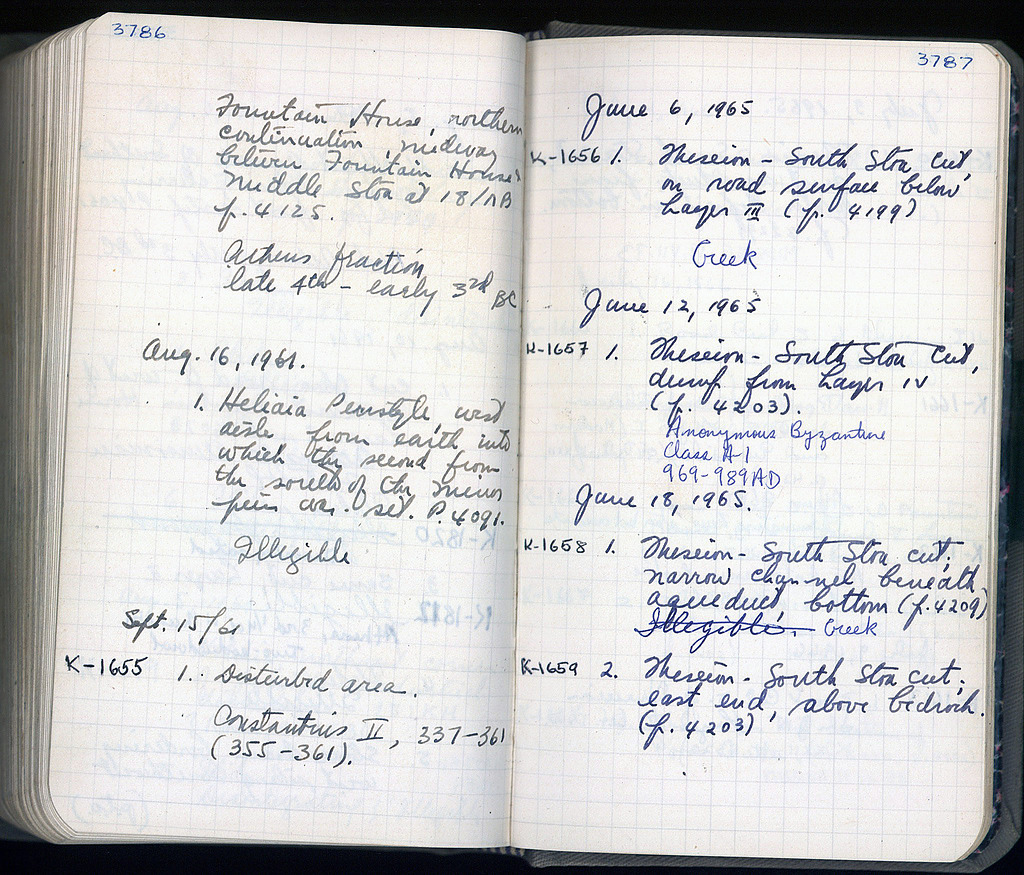 3786
Fountain House, northern
continuation, midway
between Fountain House +
Middle Stoa at 18/ΛB
p. 4125.
Athens fraction
late 4th - early 3rd BC
Aug. 16, 1961.
1. Heliaia Peristyle, west
aisle, from earth into
which the second from
the south of the minor
piers was set. P. 4091.
Illegible
Sept. 15/61
K-1655 1. Disturbed area.
Constantius II, 337-361
(355-361).
3787
June 6, 1965
K-1656 1. Theseion - South Stoa cut,
on road surface below
Layer III (p. 4199)
Greek
June 12, 1965
K-1657 1. Theseion - South Stoa cut,
dump from Layer IV
(p. 4203).
Anonymous Byzantine
Class A-1
969-989 AD
June 18, 1965.
K-1658 1. Theseion - South Stoa cut;
narrow channel beneath
aqueduct, bottom (p. 4209)
Illegible. Greek
K-1659 2. Theseion - South Stoa cut;
east end, above bedrock.
(p. 4203)